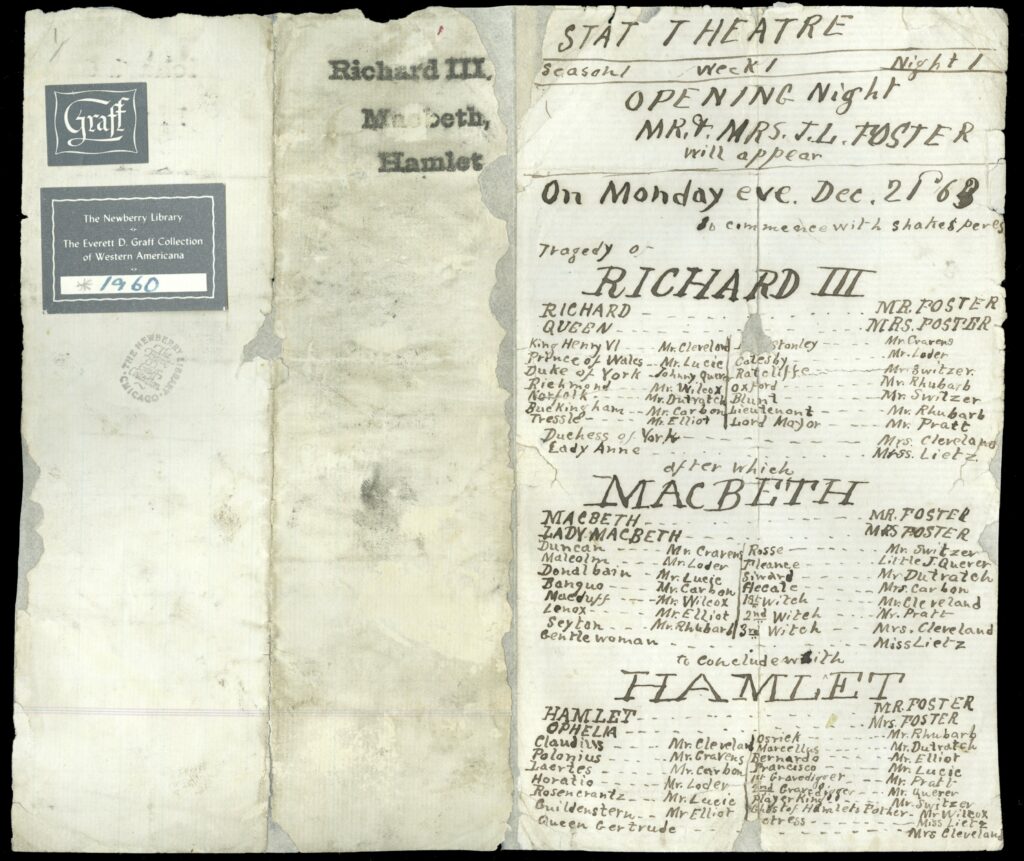 1
Graff
The Newberry Library
The Everett D. Graff Collection
of Western Americana
* 1960
THE NEWBERRY LIBRARY
CHICAGO
Richard III,
Macbeth,
Hamlet
STAT THEATRE
Season 1 Week 1 Night 1
OPENING Night
MR. & MRS. J.L. FOSTER
will appear
On Monday eve. Dec. 21
to commence with Shakesperes
Tragedy o
RICHARD III
RICHARD MR. FOSTER
QUEEN MRS. FOSTER
King Henry VI Mr. Cleveland Stanley Mr. Cravens
Prince of Wales Mr. Lucie Catesby Mr. Loder
Duke of York Johnny Quer Ratcliffe Mr. Switzer
Richmond Mr. Wilcox Oxford Mr. Rhubarb
Norfolk Mr. Dutratch Blunt Mr. Switzer
Buckingham Mr. Carbon Lieutenant Mr. Rhubarb
Tressle Mr. Elliot Lord Mayor Mr. Pratt
Duchess of York Mrs. Cleveland
Lady Anne Miss. Lietz
after which
MACBETH
MACBETH MR. FOSTER
LADY MACBETH MRS FOSTER
Duncan Mr. Cravens Rosse Mr. Switzer
Malcolm Mr. Loder Fleance Little J. Querer
Donalbain Mr. Lucie Siward Mr. Dutratch
Banquo Mr. Carbon Hecate Mrs. Carbon
Macduff Mr. Wilcox 1st Witch Mr. Cleveland
Lenox Mr. Elliot 2nd Witch Mr. Pratt
Seyton Mr. Rhubarb 3rd Witch Mrs. Cleveland
Gentlewoman Miss Lietz
to conclude with
HAMLET
HAMLET MR. FOSTER
OPHELIA Mrs. FOSTER
Claudius Mr. Cleveland Osrick Mr. Rhubarb
Polonius Mr. Cravens Marcellus Mr. Dutratch
Laertes Mr. Carbon Bernardo Mr. Elliot
Horatio Mr. Loder Francisco Mr. Lucie
Rosencrantz Mr. Lucie 1st Gravedigger Mr. Pratt
Guildenstern Mr Elliot 2nd Gravedigger Mr. Querer
Player King Mr. Switzer
Ghost of Hamlets Father Mr Wilcox
ctress Miss Lietz
Queen Gertrude Mrs Cleveland